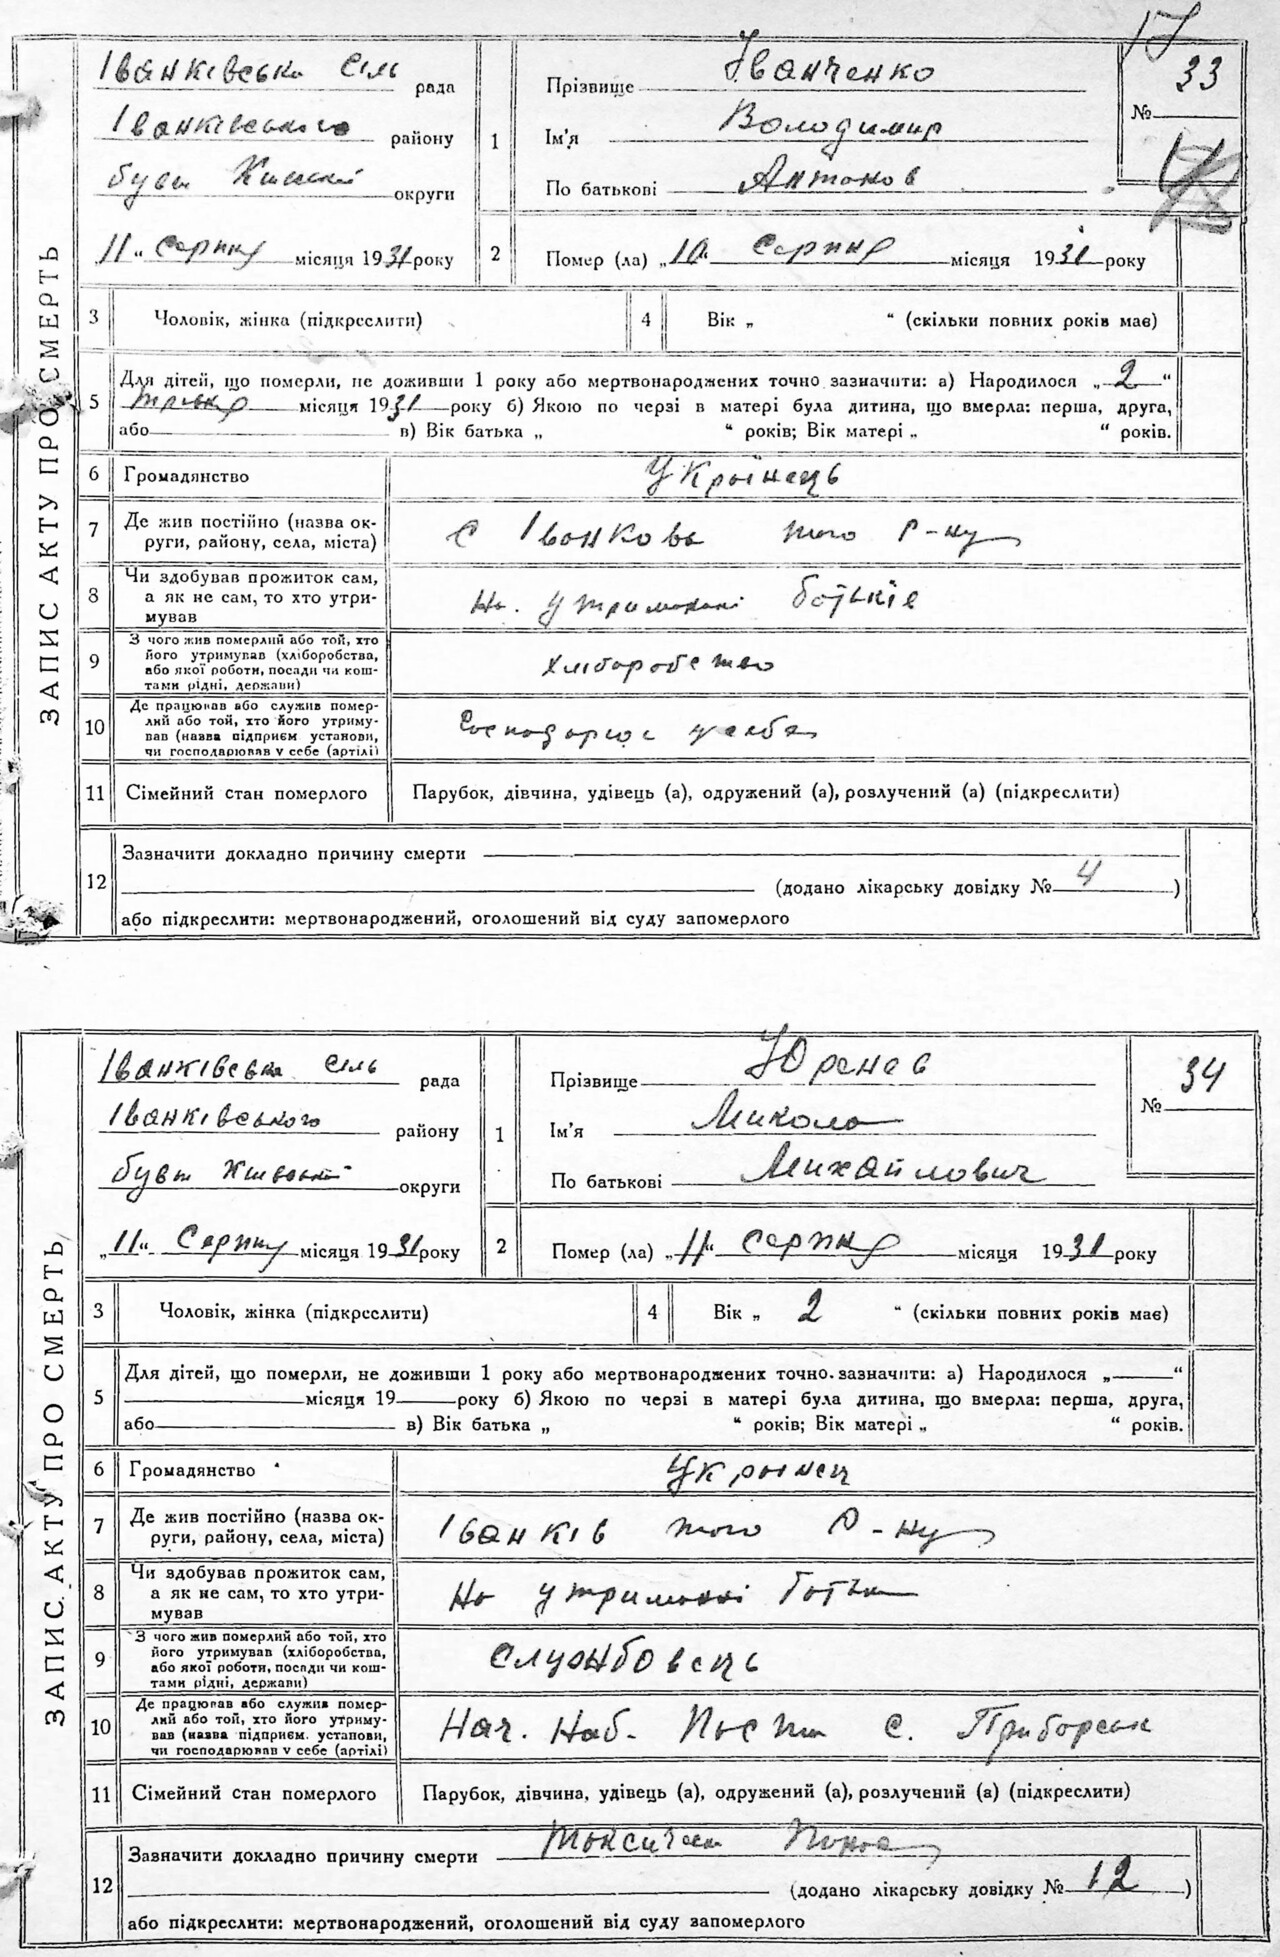 17
ЗАПИС АКТУ ПРО СМЕРТЬ
Іванківська Сіль рада
Іванківського району
бувш Київської округи
11 " Серпня місяця 1931 року
1
Прізвище Іванченко
Ім'я Володимир
По батькові Антонов
№ 33
2 Помер (ла) „ 10 " Серпня місяця 1931 року
3 Чоловік, жінка (підкреслити)
4 Вік „ “ (скільки повних років має)
5 Для дітей, що померли, не доживши 1 року або мертвонароджених точно зазначити: а) Народилося „ 2 “
місяця 1931 року б) Якою по черзі в матері була дитина, що вмерла: перша, друга,
або в) Вік батька „ “ років; Вік матері „ “ років.
6 Громадянство Українець
7 Де жив постійно (назва ок-
руги, району, села, міста) С Іванкова того Р-ну
8 Чи здобував прожиток сам,
а як не сам, то хто утри-
мував На утриманні батьків
9 З чого жив померлий або той, хто
його утримував (хліборобства,
або якої роботи, посади чи кош-
тами рідні, держави) хліборобство
10 Де працював або служив помер-
лий або той, хто його утриму-
вав (назва підприєм установи,
чи господарював у себе (артілі)
11 Сімейний стан померлого Парубок, дівчина, удівець (а), одружений (а), розлучений (а) (підкреслити)
12 Зазначити докладно причину смерти
(додано лікарську довідку № 4 )
або підкреслити: мертвонароджений, оголошений від суду запомерлого
ЗАПИС АКТУ ПРО СМЕРТЬ
Іванківська сіль рада
Іванківського району
бувш Київської округи
„ 11 “ Серпня місяця 1931 року
1
Прізвище Юренев
Ім'я Микола
По батькові Михайлович
№ 34
2 Помер (ла) „ 11 “ серпня місяця 1931 року
3 Чоловік, жінка (підкреслити)
4 Вік „ 2 “ (скільки повних років має)
5 Для дітей, що померли, не доживши 1 року або мертвонароджених точно зазначити: а) Народилося „ “
місяця 19 року б) Якою по черзі в матері була дитина, що вмерла: перша, друга,
або в) Вік батька „ “ років; Вік матері „ “ років.
6 Громадянство Українец
7 Де жив постійно (назва ок-
руги, району, села, міста) Іванків того Р-ну
8 Чи здобував прожиток сам,
а як не сам, то хто утри-
мував На утриманні батька
9 З чого жив померлий або той, хто
його утримував (хліборобства,
або якої роботи, посади чи кош-
тами рідні, держави) службовець
10 Де працював або служив помер-
лий або той, хто його утриму-
вав (назва підприєм. установи,
чи господарював у себе (артілі) Нач. Наб. Поста с. Приборськ
11 Сімейний стан померлого Парубок, дівчина, удівець (а), одружений (а), розлучений (а) (підкреслити)
12 Зазначити докладно причину смерти Токсичен Понос
(додано лікарську довідку № 12 )
або підкреслити: мертвонароджений, оголошений від суду запомерлого